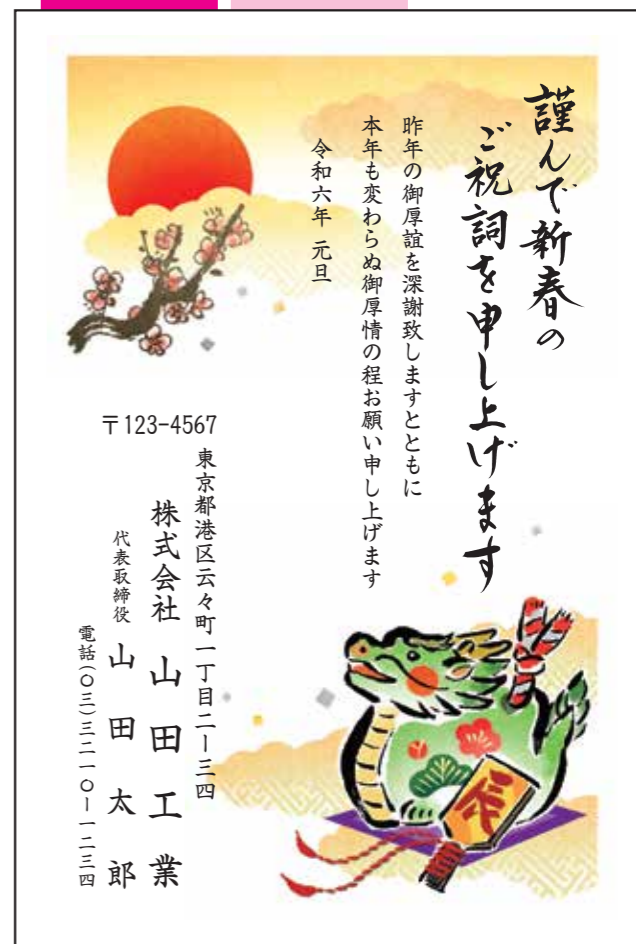 謹んで新春の
ご祝詞を申し上げます
昨年の御厚誼を深謝致しますとともに
本年も変わらぬ御厚情の程お願い申し上げます
令和六年 元旦
〒123-4567
東京都港区云々町一丁目二ー三四
株式会社 山田工業
代表取締役 山田太郎
電話(〇三)三二一〇ー一二三四
辰